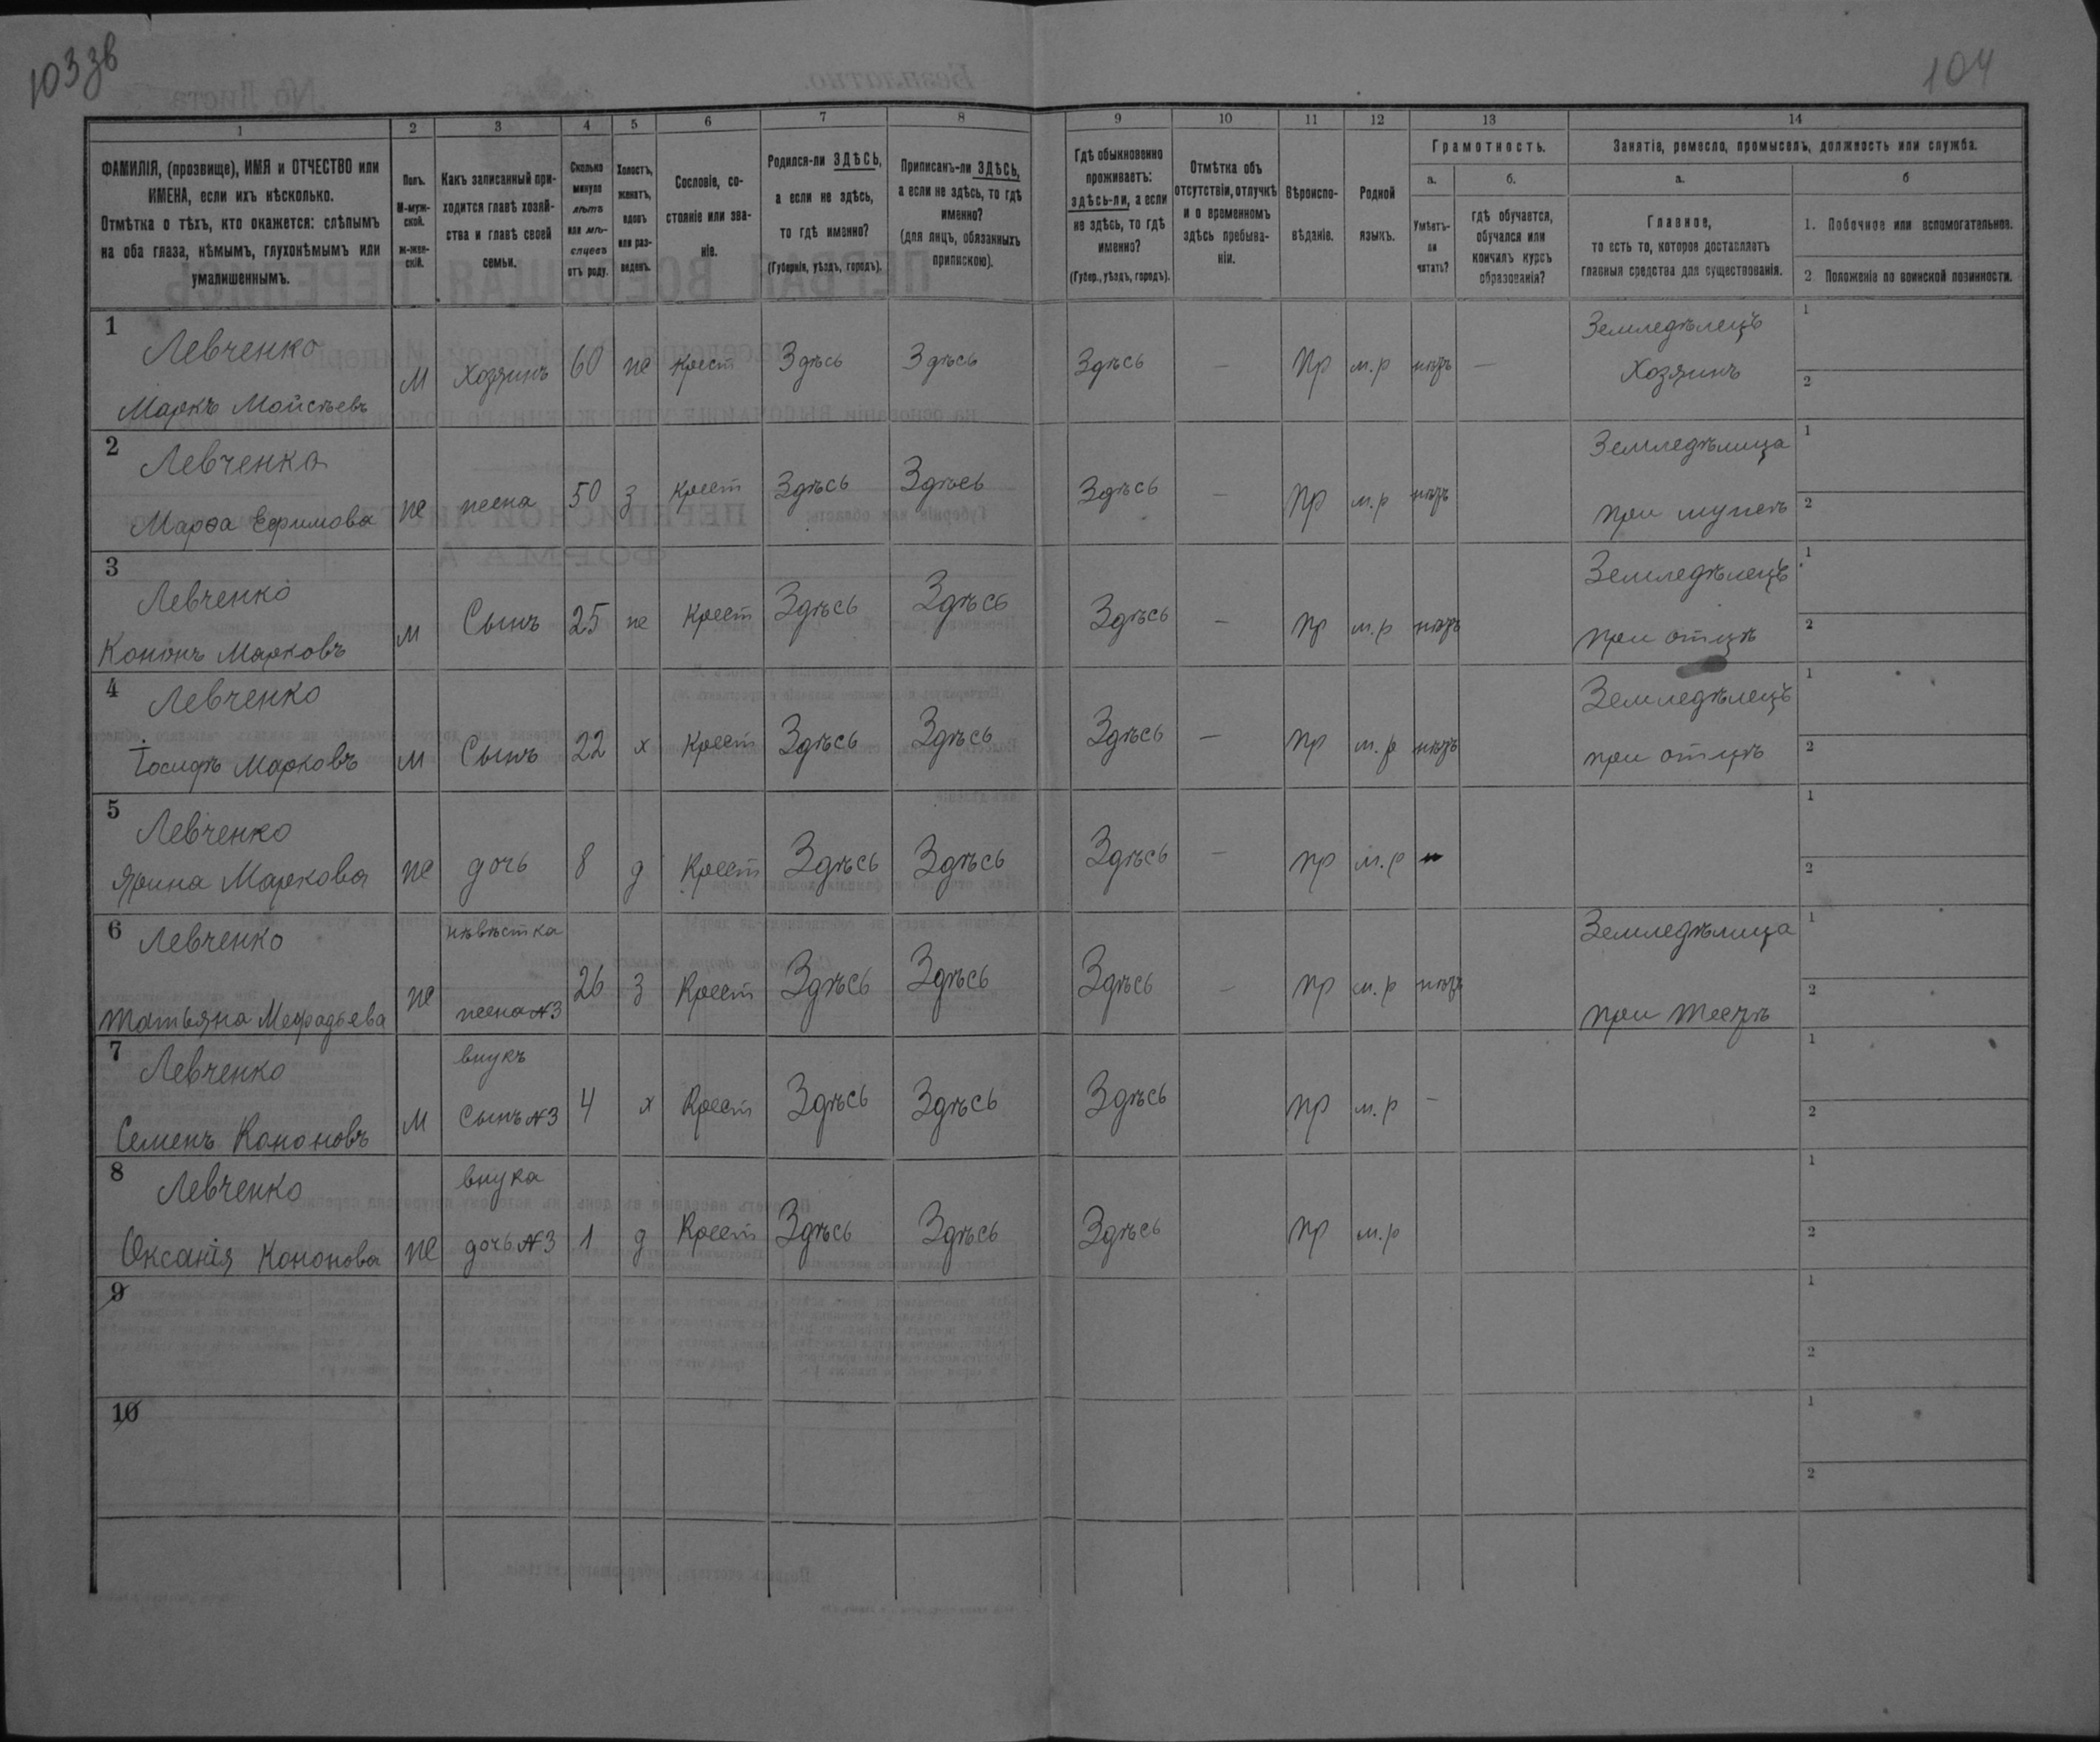 103 зв
104
1 2 3 4 5 6 7 8 9 10 11 12 13 14
ФАМИЛІЯ, (прозвище), ИМЯ и ОТЧЕСТВО или
ИМЕНА, если ихъ нѣсколько.
Отмѣтка о тѣхъ, кто окажется: слѣпымъ
на оба глаза, нѣмымъ, глухонѣмымъ или
умалишеннымъ.
Полъ.
М-муж-
ской.
ж-жен-
скій.
Какъ записанный при-
ходится главѣ хозяй-
ства и главѣ своей
семьи.
Сколько
минуло
лѣтъ
или мѣ-
сяцевъ
отъ роду.
Холостъ,
женатъ,
вдовъ
или раз-
веденъ.
Сословіе, со-
стояніе или зва-
ніе.
Родился-ли ЗДѢСЬ,
а если не здѣсь,
то гдѣ именно?
(Губернія, уѣздъ, городъ).
Приписанъ-ли ЗДѢСЬ,
а если не здѣсь, то гдѣ
именно?
(для лицъ, обязанныхъ
припискою).
Гдѣ обыкновенно
проживаетъ:
здѣсь-ли, а если
не здѣсь, то гдѣ
именно?
(Губер., уѣздъ, городъ).
Отмѣтка объ
отсутствіи, отлучкѣ
и о временномъ
здѣсь пребыва-
ніи.
Вѣроиспо-
вѣданіе.
Родной
языкъ.
Грамотность.
а.
Умѣетъ-
ли
читать?
б.
гдѣ обучается,
обучался или
кончилъ курсъ
образованія?
Занятіе, ремесло, промыселъ, должность или служба.
а.
Главное,
то есть то, которое доставляетъ
главныя средства для существованія.
б
1. Побочное или вспомогательное.
2. Положеніе по воинской повинности.
1 Левченко Земледѣлецъ 1
Маркъ Мойсѣевъ м Хозяинъ 60 же крест Здѣсь Здѣсь Здѣсь — пр м.р нѣтъ — Хозяинъ 2
2 Левченко Земледѣлица 1
Марѳа Ефимова же жена 50 з крест Здѣсь Здѣсь Здѣсь — пр м.р нѣтъ при мужѣ 2
3 Левченко Земледѣлецъ 1
Кононъ Марковъ м Сынъ 25 же крест Здѣсь Здѣсь Здѣсь — пр м.р нѣтъ при отцѣ 2
4 Левченко Земледѣлецъ 1
Іосифъ Марковъ м Сынъ 22 х крест Здѣсь Здѣсь Здѣсь — пр м.р нѣтъ при отцѣ 2
5 Левченко 1
Ярина Маркова же дочь 8 д Крест Здѣсь Здѣсь Здѣсь — пр м.р н 2
6 Левченко нѣвѣстка Земледѣлица 1
Татьяна Мефодьева же жена №3 26 з Крест Здѣсь Здѣсь Здѣсь — пр м.р нѣтъ при тестѣ 2
7 Левченко внукъ 1
Семенъ Кононовъ м Сынъ №3 4 х Крест Здѣсь Здѣсь Здѣсь пр м.р — 2
8 Левченко внука 1
Оксанія Кононова же дочь №3 1 д Крест Здѣсь Здѣсь Здѣсь пр м.р 2
9 1
2
10 1
2